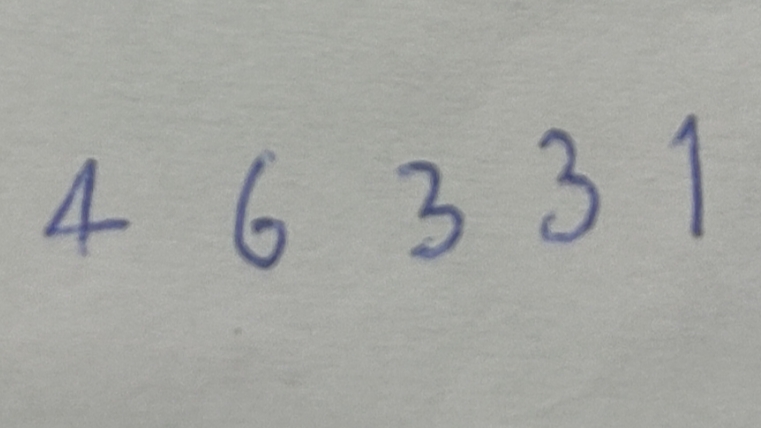 4 6 3 3 1